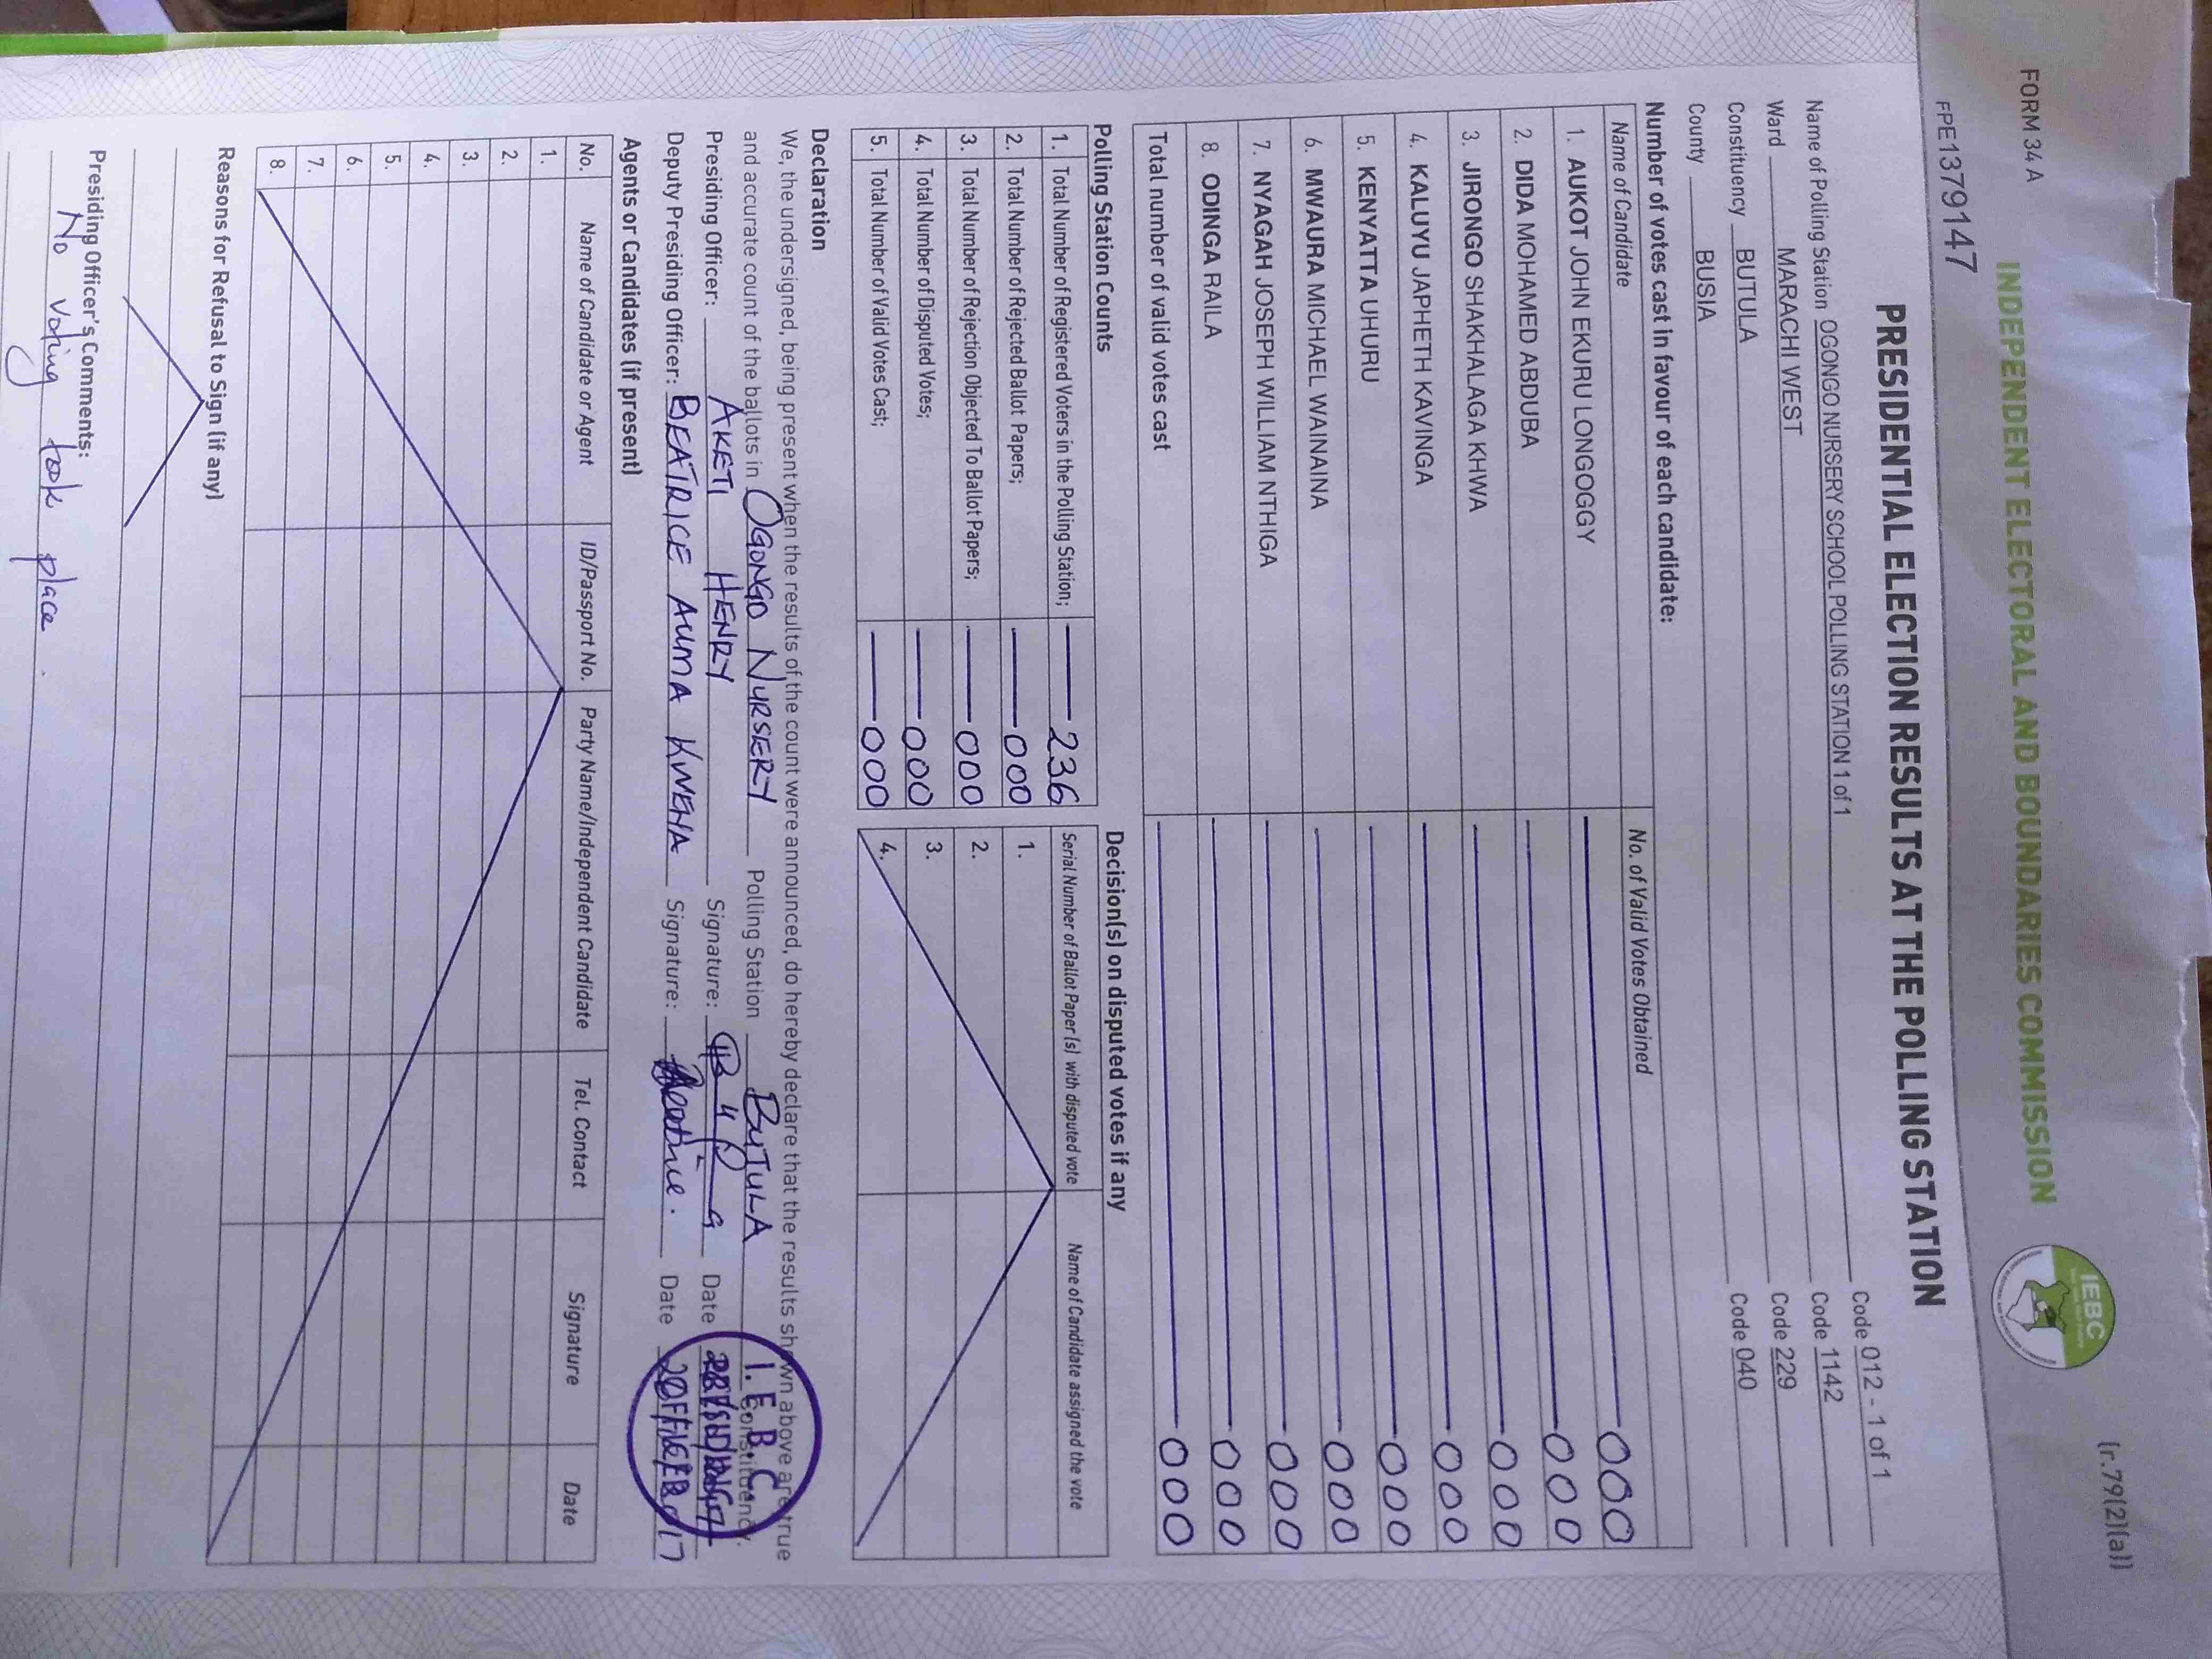 (r.79(2)(a))
FORM 34 A
INDEPENDENT ELECTORAL AND BOUNDARIES COMMISSION
IEBC
FPE1379147
PRESIDENTIAL ELECTION RESULTS AT THE POLLING STATION
Name of Polling Station OGONGO NURSERY SCHOOL POLLING STATION 1 of 1 Code 012 - 1 of 1
Ward MARACHI WEST Code 1142
Constituency BUTULA Code 229
County BUSIA Code 040
Number of votes cast in favour of each candidate:
Name of Candidate No. of Valid Votes Obtained
1. AUKOT JOHN EKURU LONGOGGY 000
2. DIDA MOHAMED ABDUBA 000
3. JIRONGO SHAKHALAGA KHWA 000
4. KALUYU JAPHETH KAVINGA 000
5. KENYATTA UHURU 000
6. MWAURA MICHAEL WAINAINA 000
7. NYAGAH JOSEPH WILLIAM NTHIGA 000
8. ODINGA RAILA 000
Total number of valid votes cast 000
Polling Station Counts
1. Total Number of Registered Voters in the Polling Station; 236
2. Total Number of Rejected Ballot Papers; 000
3. Total Number of Rejection Objected To Ballot Papers; 000
4. Total Number of Disputed Votes; 000
5. Total Number of Valid Votes Cast; 000
Decision(s) on disputed votes if any
Serial Number of Ballot Paper (s) with disputed vote Name of Candidate assigned the vote
1.
2.
3.
4.
Declaration
We, the undersigned, being present when the results of the count were announced, do hereby declare that the results shown above are true
and accurate count of the ballots in OGONGO NURSERY Polling Station BUTULA Constituency.
Presiding Officer: AKETI HENRY Signature: Date
Deputy Presiding Officer: BEATRICE AUMA KWEHA Signature: Beatrice. Date
I.E.B.C.
PRESIDING
OFFICER
Agents or Candidates (if present)
No. Name of Candidate or Agent ID/Passport No. Party Name/Independent Candidate Tel. Contact Signature Date
1.
2.
3.
4.
5.
6.
7.
8.
Reasons for Refusal to Sign (if any)
Presiding Officer's Comments:
No voting took place.